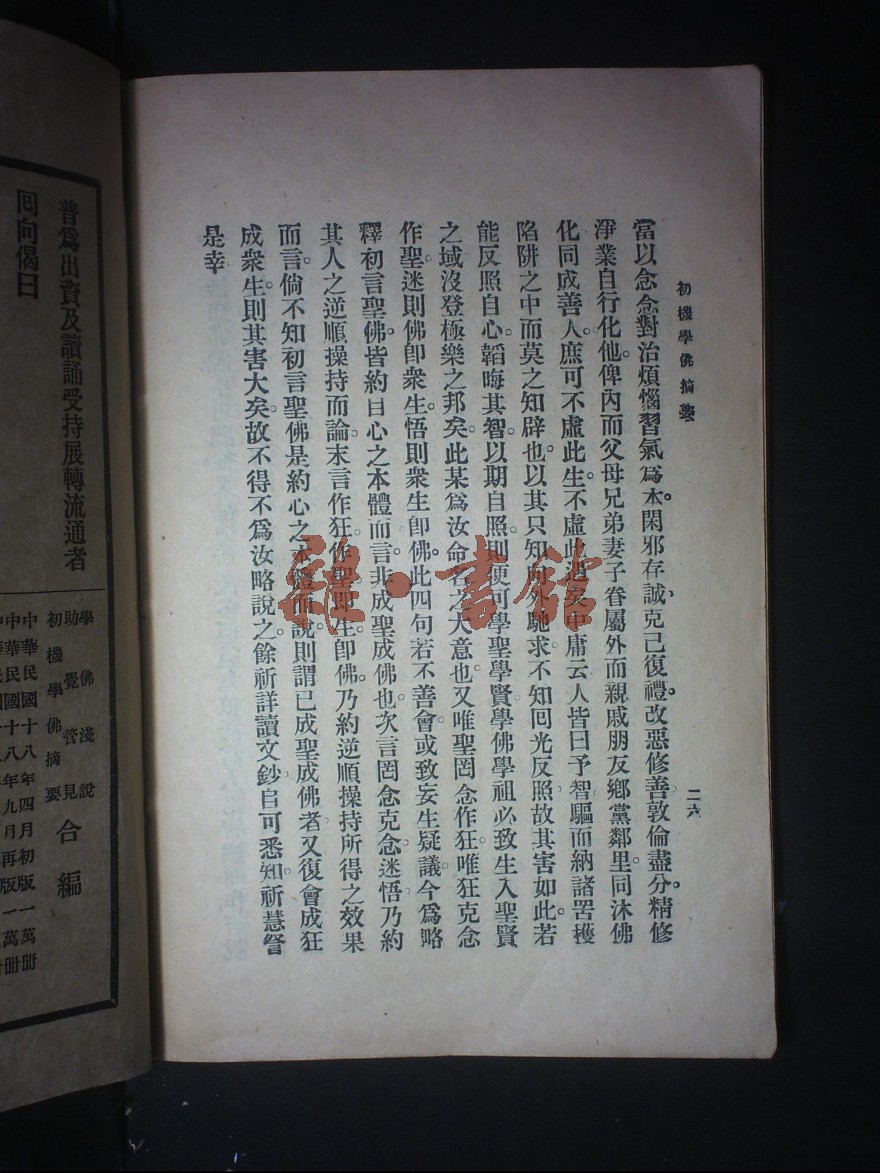 初機學佛摘要
二六
當以念念對治煩惱習氣爲本。閑邪存誠、克己復禮。改惡修善、敦倫盡分。精修
淨業、自行化他。俾內而父母兄弟妻子眷屬、外而親戚朋友鄉黨鄰里。同沐佛
化、同成善人。庶可不虛此生、不虛此遇矣。中庸云、人皆曰予智、驅而納諸罟擭
陷阱之中、而莫之知辟也。以其只知向外馳求、不知回光反照、故其害如此。若
能反照自心。韜晦其智。以期自照。則便可學聖學賢學佛學祖。必致生入聖賢
之域、沒登極樂之邦矣。此某爲汝命名之大意也。又唯聖罔念作狂。唯狂克念
作聖。迷則佛即衆生。悟則衆生即佛。此四句若不善會。或致妄生疑議。今爲略
釋。初言聖佛。皆約自心之本體而言。非成聖成佛也。次言罔念克念迷悟。乃約
其人之逆順操持而論。末言作狂。作聖。即生。即佛。乃約逆順操持所得之效果
而言。倘不知初言聖佛、是約心之本體而說。則謂已成聖成佛者、又復會成狂
成衆生。則其害大矣。故不得不爲汝略說之。餘祈詳讀文鈔、自可悉知。祈慧詧
是幸
雜·書館
學佛淺說
助覺管見
初機學佛摘要
合編
中華民國十八年四月初版一萬冊
普爲出資及讀誦受持展轉流通者
回向偈曰